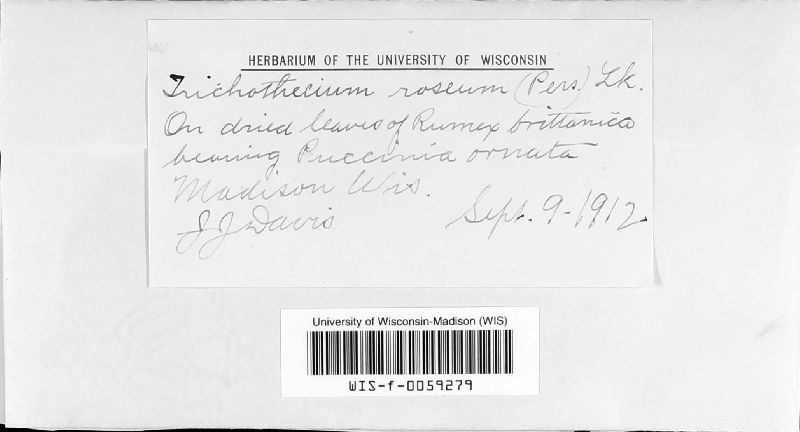 HERBARIUM OF THE UNIVERSITY OF WISCONSIN
Trichothecium roseum (Pers.) Lk.
On dried leaves of Rumex brittanica
bearing Puccinia ornata
Madison Wis.
J J Davis Sept. 9-1912.
University of Wisconsin-Madison (WIS)
WIS-f-0059279